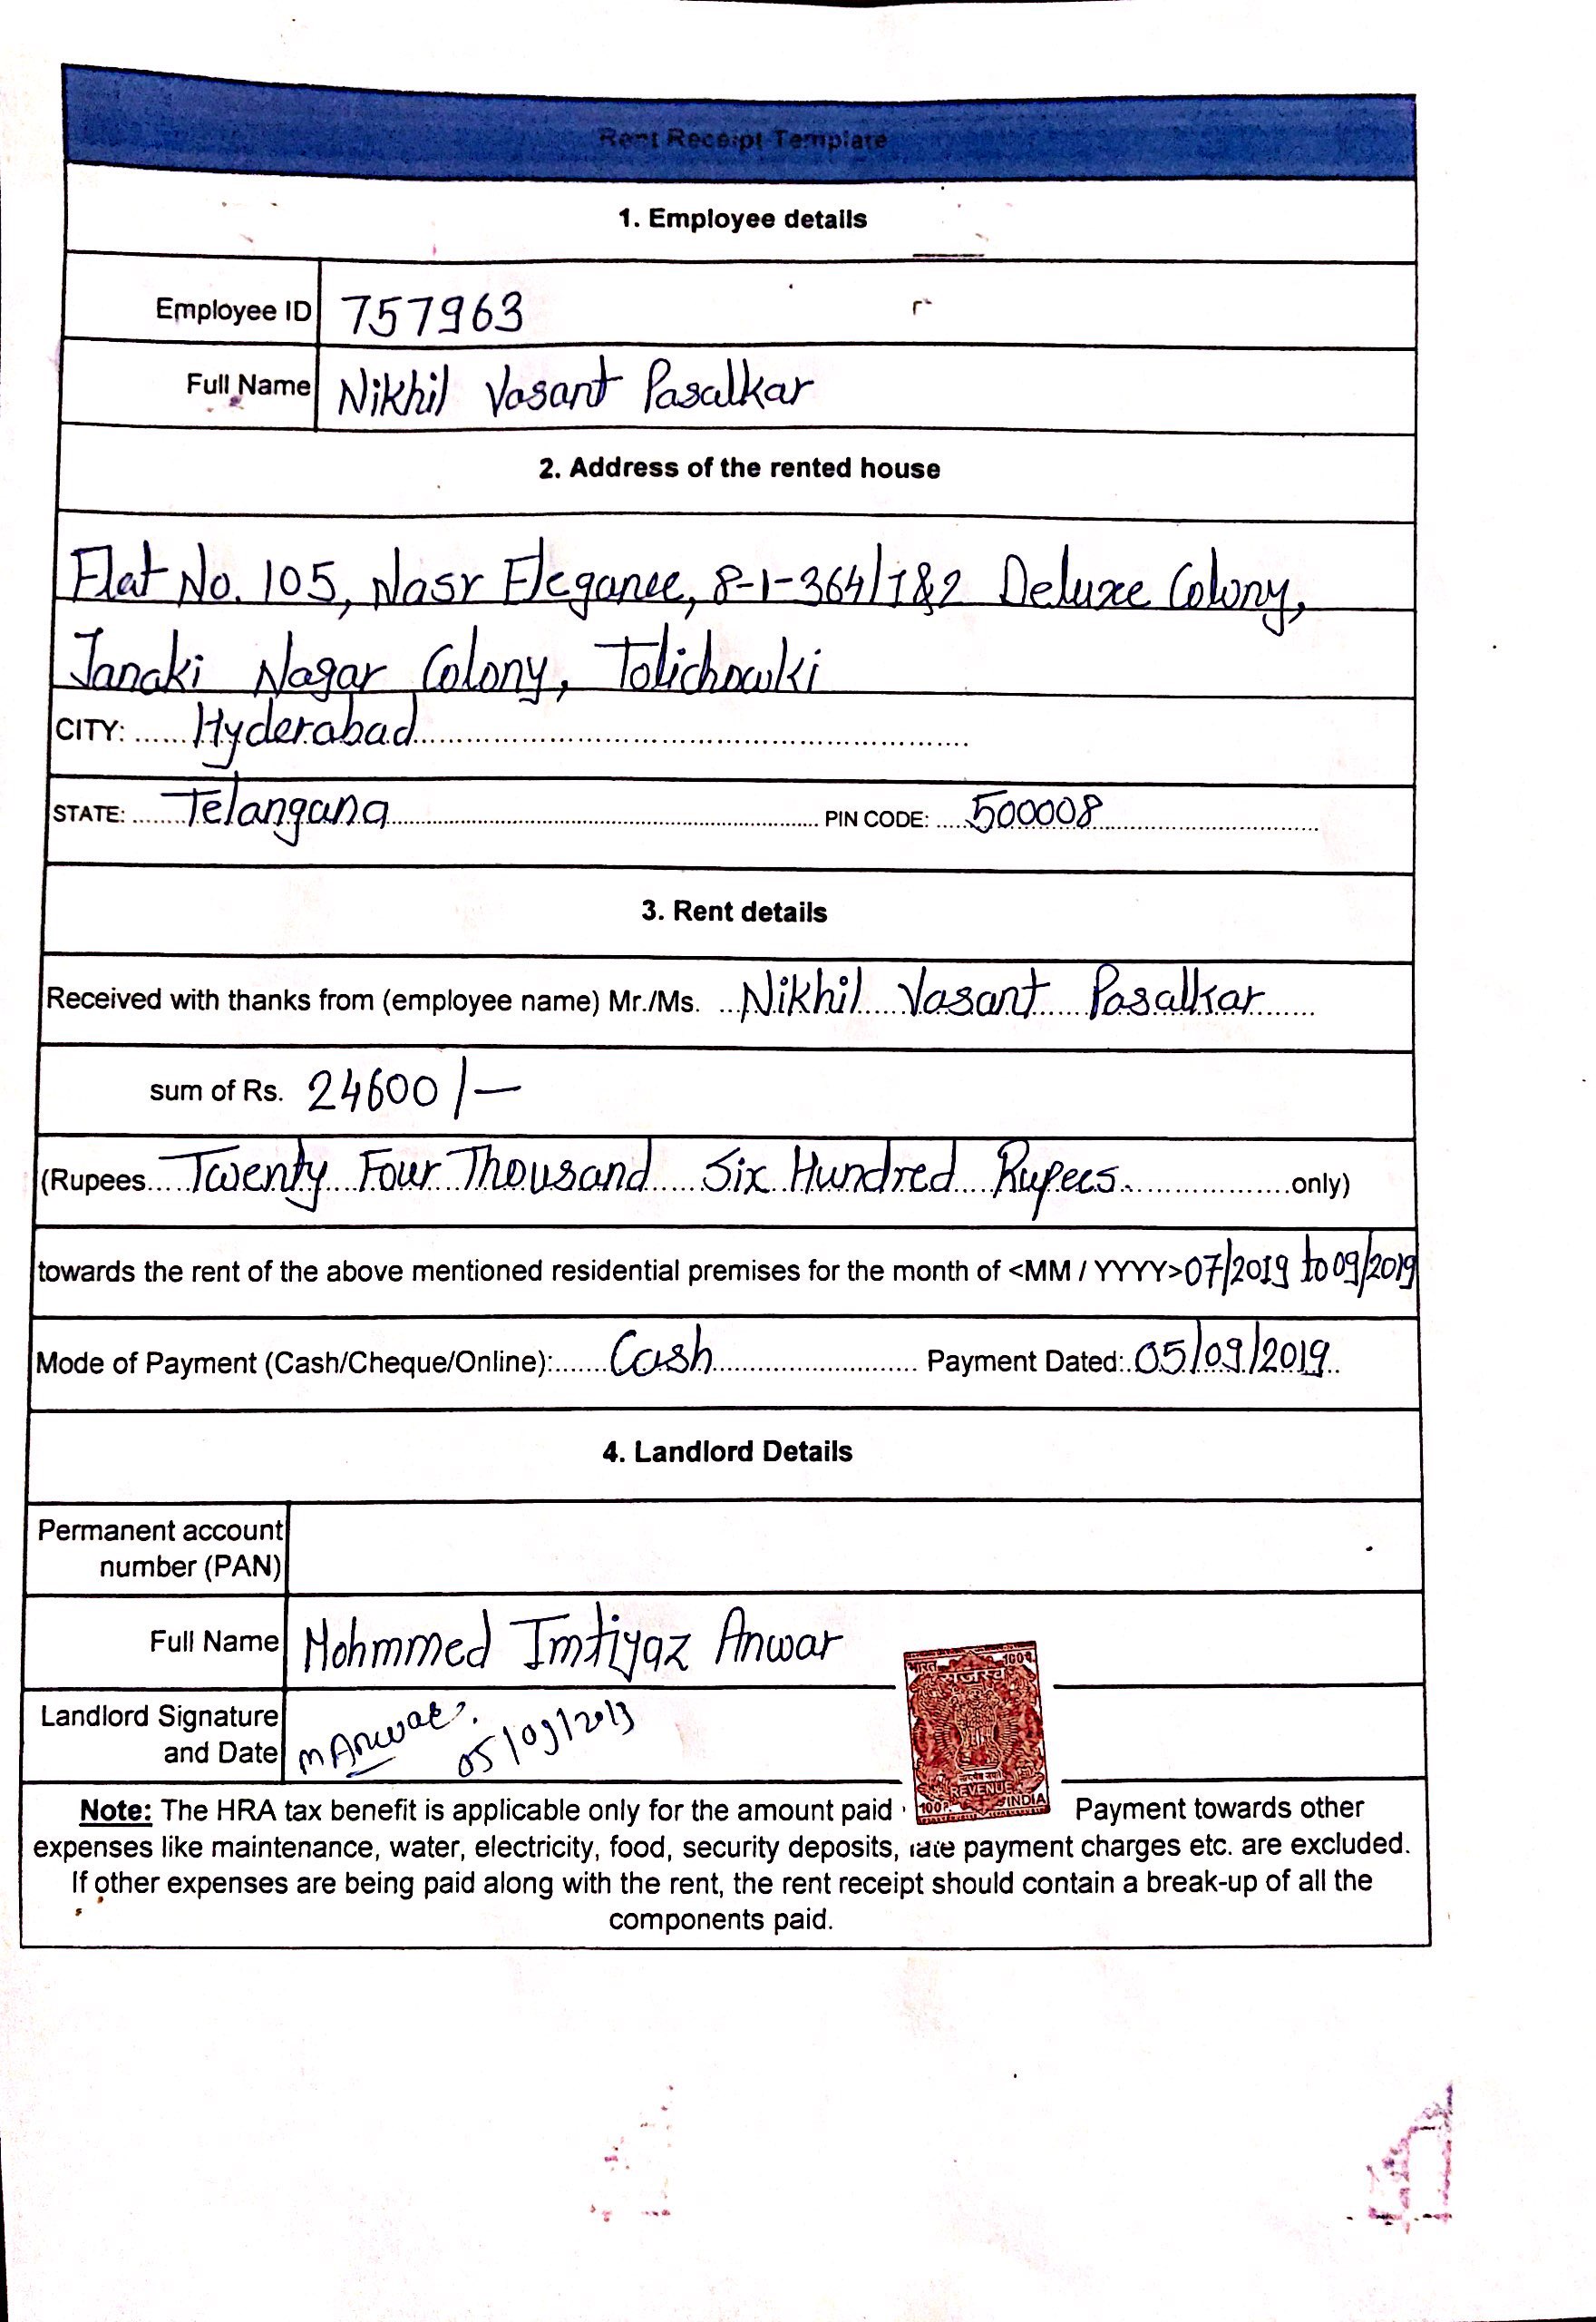 Rent Receipt Template
1. Employee details
Employee ID 757963
Full Name Nikhil Vasant Pasalkar
2. Address of the rented house
Flat No. 105, Nasr Elegance, 8-1-364/1&2 Deluxe Colony,
Janaki Nagar Colony, Tolichowki
CITY: ...... Hyderabad ......
STATE: ...... Telangana ...... PIN CODE: ..... 500008 ......
3. Rent details
Received with thanks from (employee name) Mr./Ms. ... Nikhil Vasant Pasalkar ......
sum of Rs. 24600/-
(Rupees.... Twenty Four Thousand Six Hundred Rupees. ......only)
towards the rent of the above mentioned residential premises for the month of <MM / YYYY> 07/2019 to 09/2019
Mode of Payment (Cash/Cheque/Online):...... Cash ...... Payment Dated:. 05/09/2019..
4. Landlord Details
Permanent account
number (PAN)
Full Name Mohmmed Imtiyaz Anwar
भारत 100प
राजस्व
Landlord Signature
and Date M Anwar. 05/09/2019
REVENUE
100P. INDIA
Note: The HRA tax benefit is applicable only for the amount paid Payment towards other
expenses like maintenance, water, electricity, food, security deposits, late payment charges etc. are excluded.
If other expenses are being paid along with the rent, the rent receipt should contain a break-up of all the
components paid.